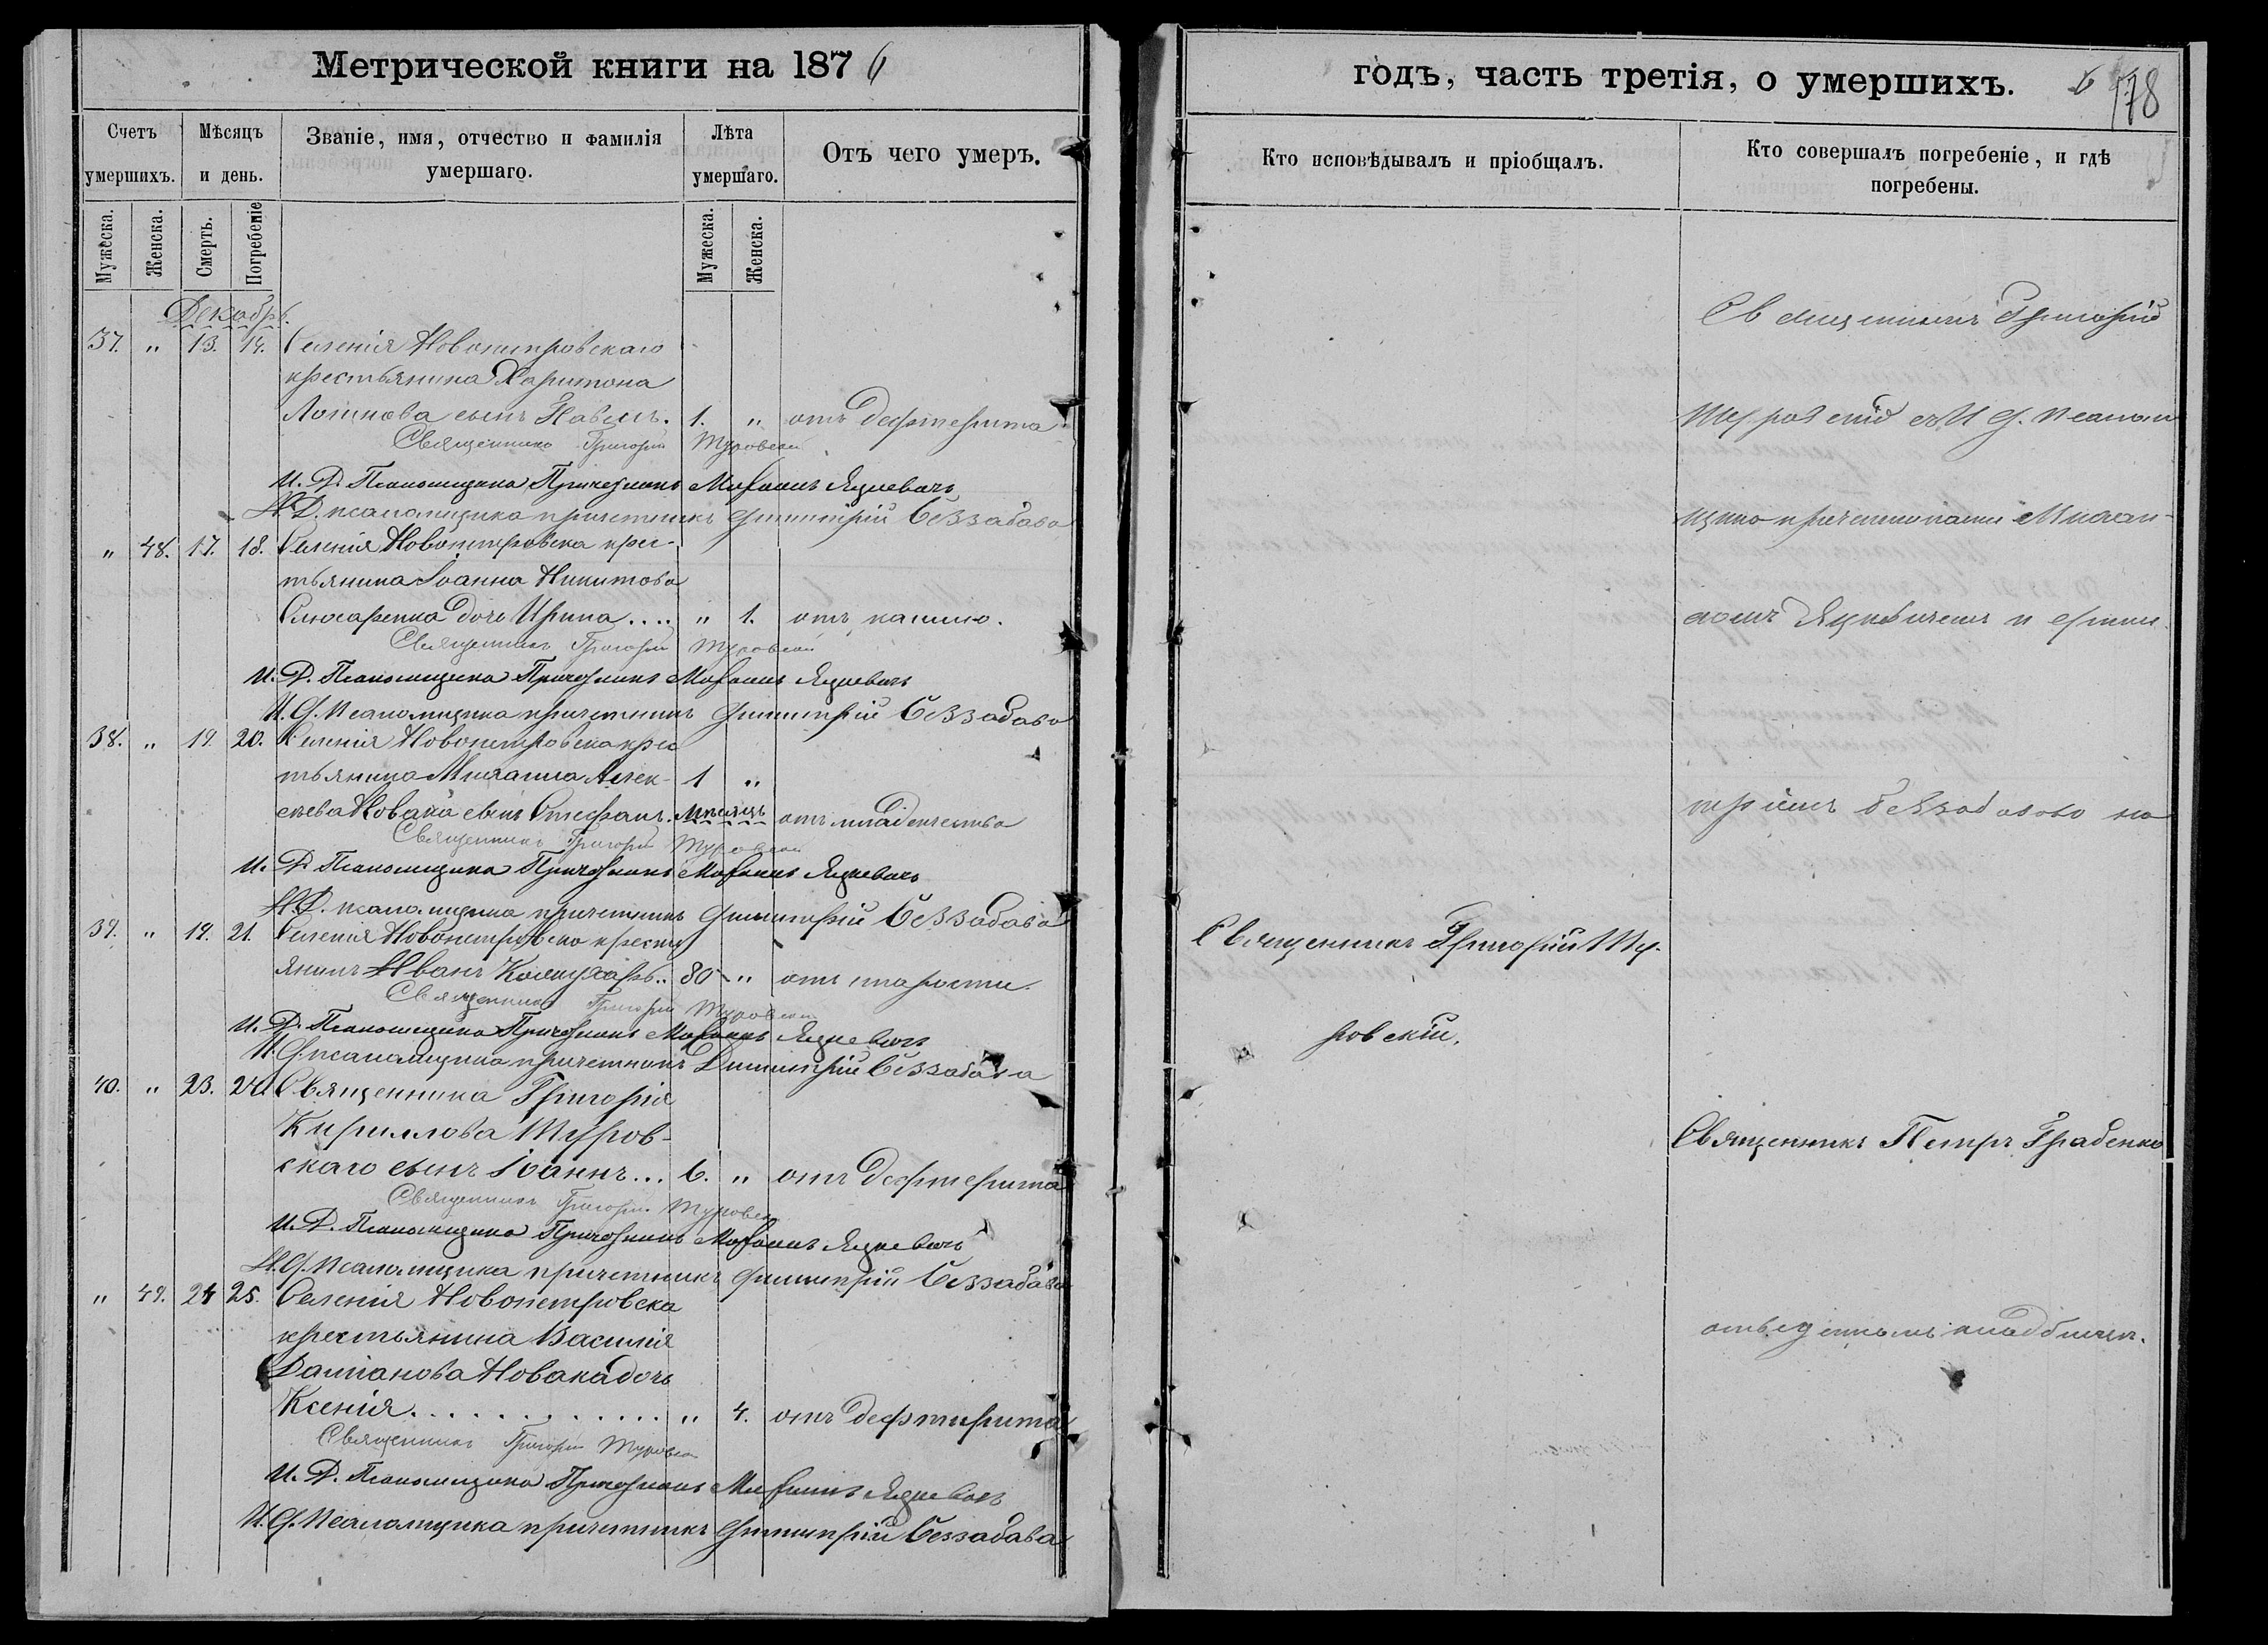 Метрической книги на 1876
Счетъ умершихъ.
Мѣсяцъ и день.
Званіе, имя, отчество и фамилія умершаго.
Лѣта умершаго.
Отъ чего умеръ.
Мужеска. Женска. Смерть. Погребеніе Мужеска. Женска.
Декабрь.
37. " 13. 14. Селенія Новопетровскаго
крестьянина Харитона
Логинова сынъ Павелъ. 1. " отъ дефтерита
Священникъ Григорій Туровскій
И. Д. Псаломщика Причетникъ Яцкевичъ
И. Д. псаломщика причетникъ Димитрій Беззабава
" 48. 17. 18. Селенія Новопетровска крес-
тьянина Іоанна Никитова
Слюсаренка дочь Ирина.... " 1. отъ кашлю.
Священникъ Григорій Туровскій
И. Д. Псаломщика Причетникъ Яцкевичъ
И. Д. Псаломщика причетникъ Димитрій Беззабава
38. " 19. 20. Селенія Новопетровска крес
тьянина Михаила Алек- 1 "
сѣева Новака сынъ Стефанъ. мѣсяцъ отъ младенчества
Священникъ Григорій Туровскій
И. Д. Псаломщика Причетникъ Яцкевичъ
И. Д. псаломщика причетникъ Димитрій Беззабава
39. " 19. 21. Селенія Новопетровска кресть
янинъ Иванъ .. 80 " отъ старости.
Священникъ Григорій Туровскій
И. Д. Псаломщика Причетникъ Яцкевичъ
И. Д. псаломщика причетникъ Димитрій Беззабава
40. " 23. 24. Священника Григорія
Кириллова Туров-
скаго сынъ Іоаннъ... 6. " отъ дефтерита
Священникъ Григорій Туровскій
И. Д. Псаломщика Причетникъ Яцкевичъ
И. Д. Псаломщика причетникъ Димитрій Беззабава
" 49. 24 25. Селенія Новопетровска
крестьянина Василія
Даміанова Новака дочь
Ксенія............. " 4. отъ дефтирита
Священникъ Григорій Туровскій
И. Д. Псаломщика Причетникъ Яцкевичъ
И. Д. Псаломщика причетникъ Димитрій Беззабава
годъ, часть третія, о умершихъ.
178
Кто исповѣдывалъ и пріобщалъ.
Кто совершалъ погребеніе, и гдѣ погребены.
Священникъ Григорій
Туровскій съ И. Д. Псалом
щика причетниками Михаи-
ломъ Яцкевичемъ и Дими
тріемъ Беззабавою на
Священникъ Григорій Ту-
ровскій.
Священникъ Петръ Грабенко
отведенномъ кладбищѣ.